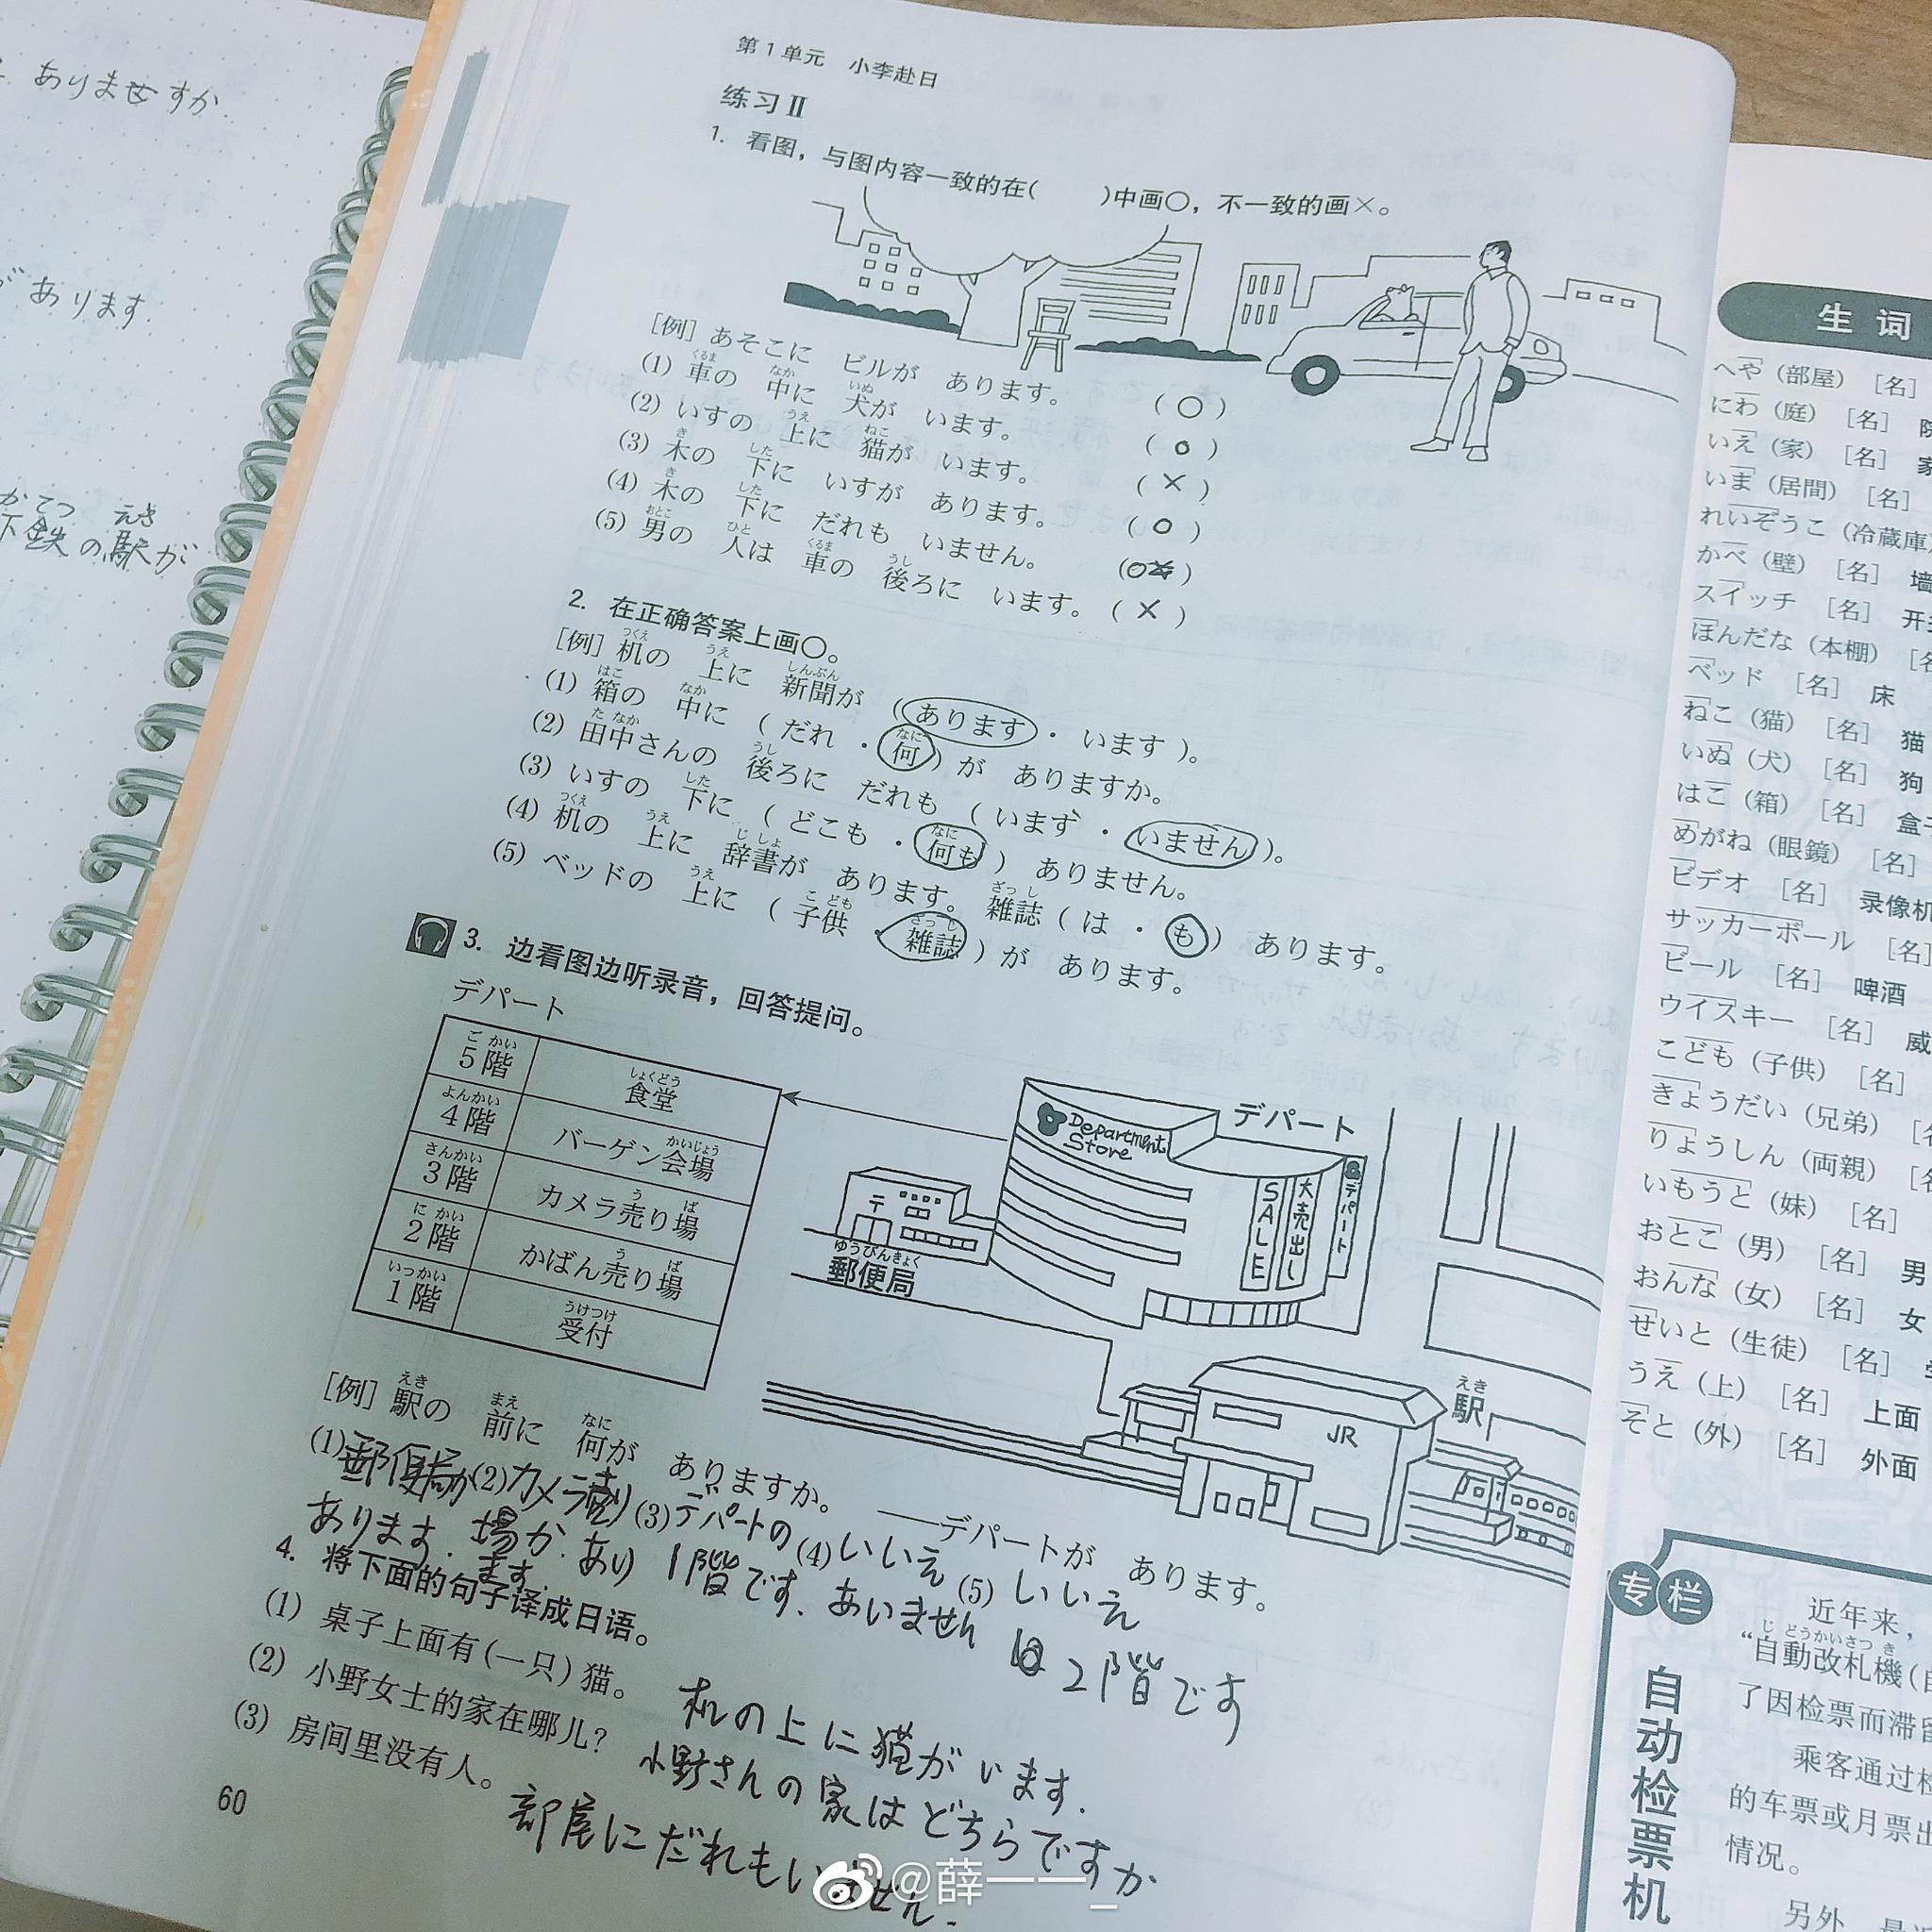 ありませすか
あります
かてつ えき
下鉄の駅が
第1单元 小李赴日
练习Ⅱ
1. 看图，与图内容一致的在( )中画○，不一致的画×。
[例] あそこに ビルが あります。 (○)
(1) 車の 中に 犬が います。 (○)
くるま なか いぬ
(2) いすの 上に 猫が います。 (×)
うえ ねこ
(3) 木の 下に いすが あります。 (○)
き した
(4) 木の 下に だれも いません。 (○×)
き した
(5) 男の 人は 車の 後ろに います。 (×)
おとこ ひと くるま うし
2. 在正确答案上画○。
[例] 机の 上に 新聞が (あります・います)。
つくえ うえ しんぶん
(1) 箱の 中に (だれ・何)が ありますか。
はこ なか なに
(2) 田中さんの 後ろに だれも (います・いません)。
た なか うし
(3) いすの 下に (どこも・何も) ありません。
した なに
(4) 机の 上に 辞書が あります。雑誌(は・も) あります。
つくえ うえ じしょ ざっし
(5) ベッドの 上に (子供・雑誌)が あります。
うえ こども ざっし
3. 边看图边听录音，回答提问。
デパート
ごかい しょくどう
5階 食堂
よんかい かいじょう
4階 バーゲン会場
さんかい う ば
3階 カメラ売り場
にかい う ば
2階 かばん売り場
いっかい うけつけ
1階 受付
デパート
Department
Store
SALE
大売出し
デパート
〒
ゆうびんきょく
郵便局
JR
えき
駅
[例] 駅の 前に 何が ありますか。 ——デパートが あります。
えき まえ なに
(1) 郵便局が
あります.
(2) カメラ売り
場が.あり
ます.
(3) デパートの
1階です.
(4) いいえ
あいません
(5) いいえ
は2階です
4. 将下面的句子译成日语。
(1) 桌子上面有(一只)猫。 机の上に猫がいます.
(2) 小野女士的家在哪儿? 小野さんの家はどちらですか
(3) 房间里没有人。 部屋にだれもいません.
60
生词
へや (部屋) [名]
にわ (庭) [名] 院
いえ (家) [名] 家
いま (居間) [名]
れいぞうこ (冷蔵庫)
かべ (壁) [名] 墙
スイッチ [名] 开
ほんだな (本棚) [名
ベッド [名] 床
ねこ (猫) [名] 猫
いぬ (犬) [名] 狗
はこ (箱) [名] 盒
めがね (眼鏡) [名]
ビデオ [名] 录像机
サッカーボール [名]
ビール [名] 啤酒
ウイスキー [名] 威
こども (子供) [名]
きょうだい (兄弟)
りょうしん (両親)
いもうと (妹) [名]
おとこ (男) [名] 男
おんな (女) [名] 女
せいと (生徒) [名]
うえ (上) [名] 上面
そと (外) [名] 外面
专栏
自动检票机
近年来，
じどうかいさつき
“自動改札機(自
了因检票而滞留
乘客通过检
的车票或月票
情况。
另外
@薛一一_